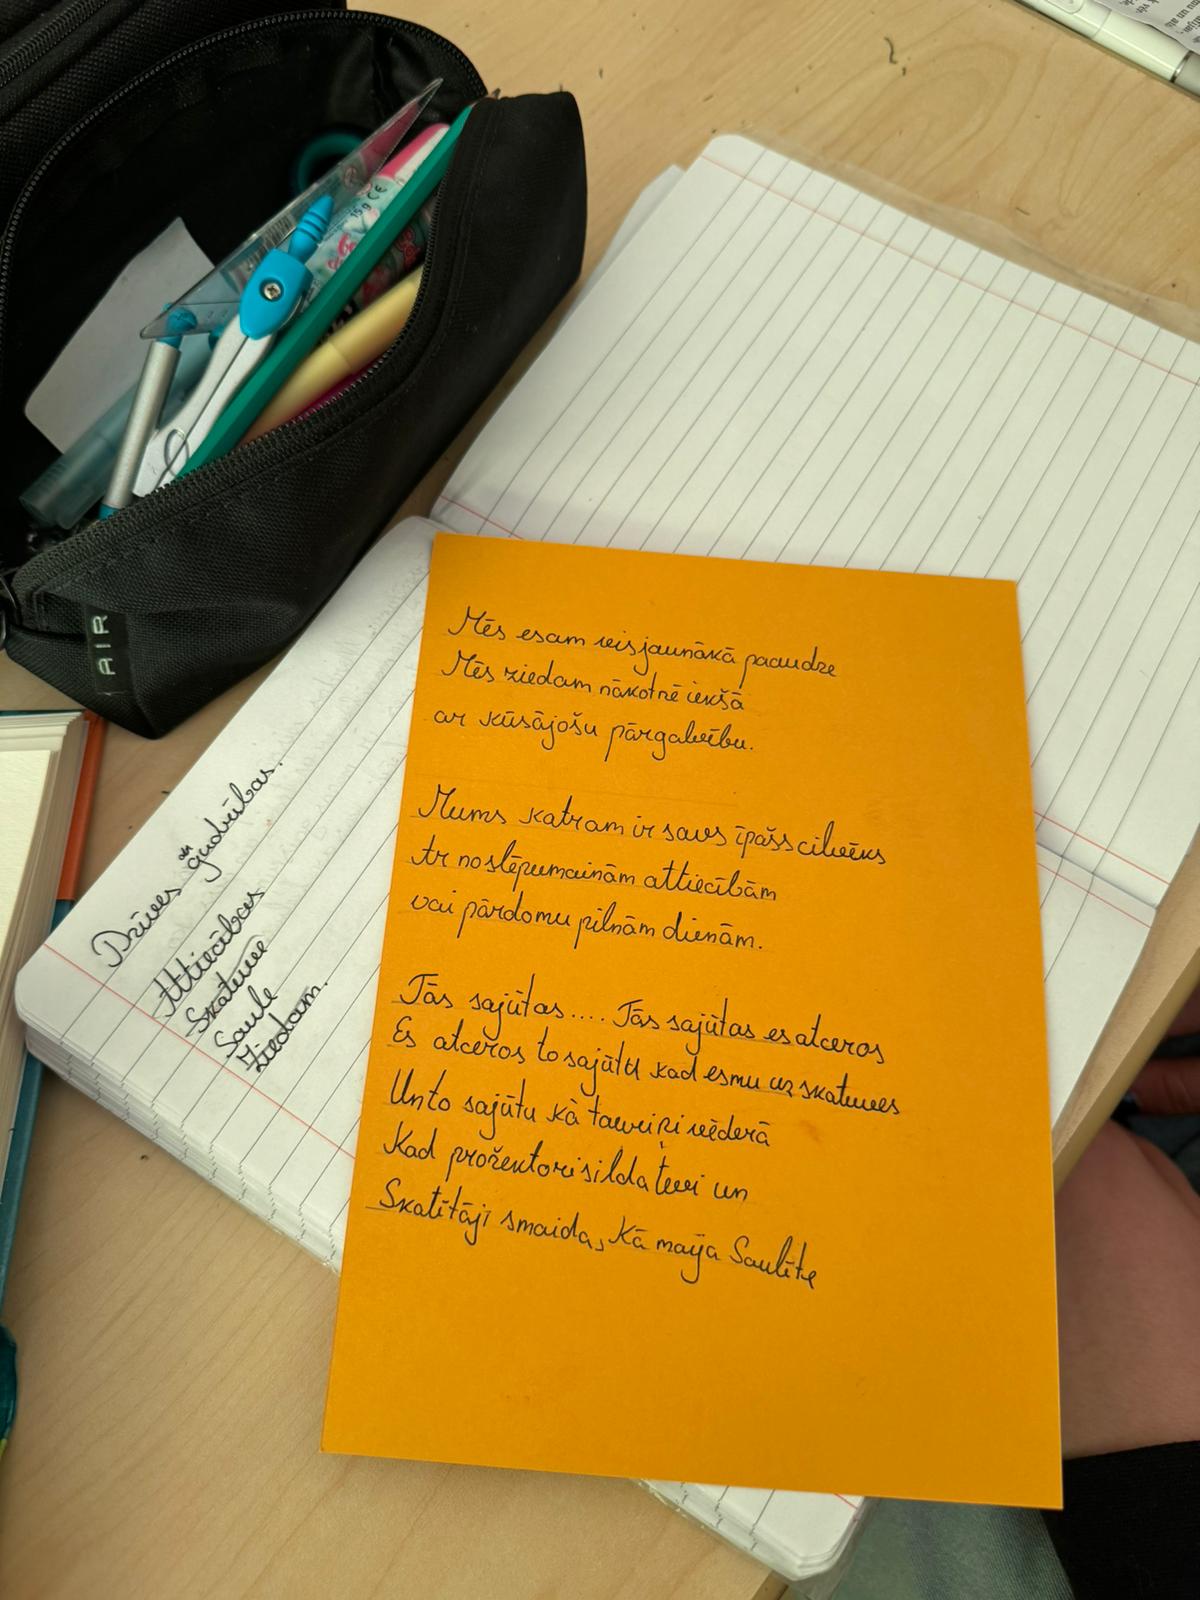 Mēs esam visjaunākā paaudze
Mēs ziedam nākotnē iekšā
ar kūsājošu pārgalvību.
Mums katram ir savs īpašs cilvēks
Ar noslēpumainām attiecībām
vai pārdomu pilnām dienām.
Tās sajūtas.... Tās sajūtas es atceros
Es atceros to sajūtu kad esmu uz skatuves
Un to sajūtu kā tauriņi vēderā
Kad prožektori silda tevi un
Skatītāji smaida, Kā maija Saulīte
Dzīves gudrības.
Attiecības
Skatuve
Saule
Ziedam.
AIR
15g CE